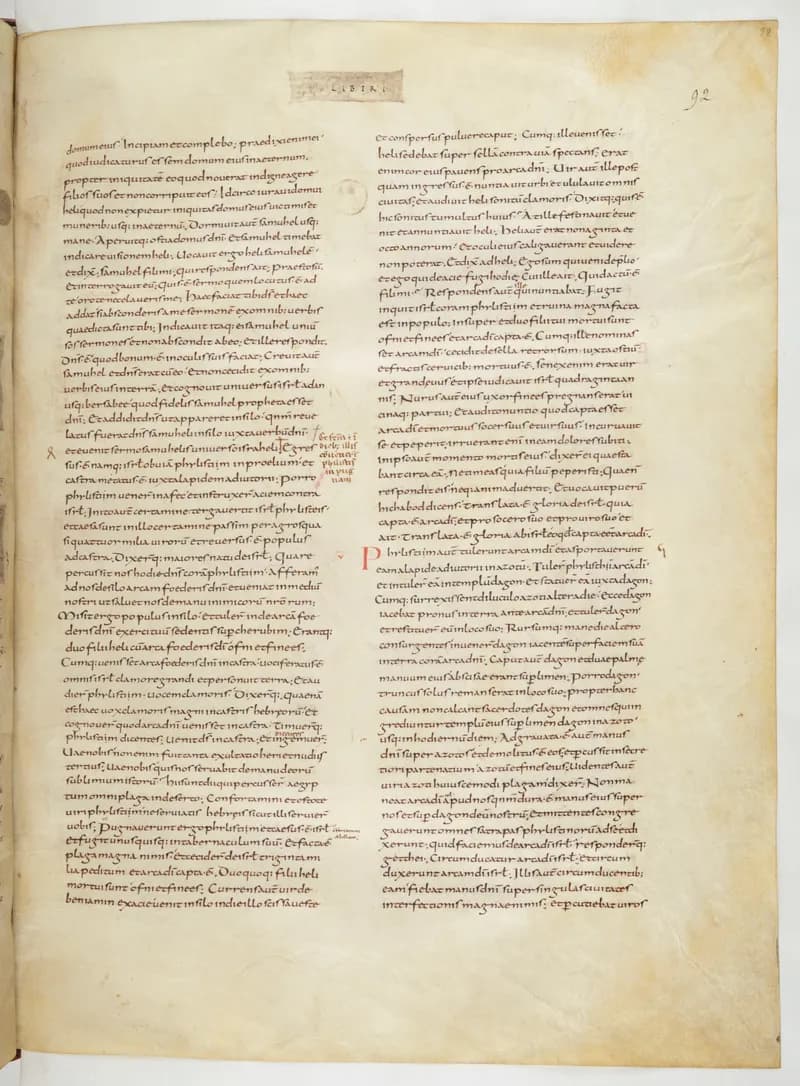 LIBRI
92
domum eius Incipiam et complebo; praedixi enim ei
quod iudicaturus essem domum eius in aeternum,
propter iniquitatē eo quod noverat indigne agere
filios suos et non corripuit eos; Idcirco iuravi domui
heli quod non expietur iniquitas domus eius victimis et
munerib; usq; in aeternū; Dormivit aut samuhel usq;
mane. Aperuitq; ostia domus dni Et samuhel timebat
indicare visionem heli; Vocavit ergo heli samuhelē
et dix; samuhel fili mi; qui respondens ait; Praesto sū;
Et interrogavit eū; quis ē sermo quem locutus ē ad
te oro te ne celaveris me; haec faciat tibi ds et haec
addat si absconderis a me sermonē ex omnib; verbis
quae dicta sunt tibi; Indicavit itaq; ei samuhel univ
sos sermones et non abscondit ab eo; Et ille respondit.
Dns ē quod bonum ē in oculis suis faciat; Crevit aut
samuhel et dns erat cū eo et non cecidit ex omnib;
verbis eius in terrā; Et cognovit universus isrl a dan
usq; bersabee quod fidelis samuhel propheta esset
dni; Et addidit dns ut appareret in silo qnm reve
latus fuerat dns samuheli in silo iuxta verbū dni
et evenit sermo samuhelis universo israheli Egres
sus ē namq; isrl obviā phylistiim in proelium et
castra metatus ē iuxta lapidem adiutorii; Porro
phylistiim venerunt in afec et instruxer aciem contra
isrl; Inito aut certamine terga vertit isrl phylisteis
et caesa sunt in illo certamine passim per agros qua
si quattuor milia virorū et reversus ē populus
ad castra; Dixerq; maiores natu de isrl; Quare
percussit nos hodie dns corā phylistiim Afferam
ad nos de silo arcam foederis dni et veniat in mediū
nostri ut salvet nos de manu inimicorū nrōrum;
Misit ergo populus in silo et tuler inde arcā foe
deris dni exercituū sedentis sup cherubim; Erantq;
duo filii heli cū arca foederis di ofni et finees;
Cumq; venisset arca foederis dni in castra vociferatus ē
omnis isrl clamore grandi et personuit terra; Et au
dier phylistiim vocem clamoris Dixerq; quaenā
est haec vox clamoris magni in castris hebreorū Et
cognover quod arca dni venisset in castra Timuerq;
phylistiim dicentes; Venit ds in castra; Et ingemuer;
Vae nobis non enim fuit tanta exultatio heri et nudius
tertius; Vae nobis quis nos servabit de manu deorū
sublimium istorū hi sunt dii qui percusser aegyp
tum omni plaga in deserto; Confortamini et estote
viri phylistiim ne serviatis hebreis sicut illi servier
vobis; Pugnaverunt ergo phylistiim et caesus ē isrl
et fugit unusquisq; in tabernaculum suū; Et facta ē
plaga magna nimis et ceciderunt de isrl triginta mi
lia peditum et arca di capta ē; Duo quoq; filii heli
mortui sunt ofni et finees; Currens aut vir de
beniamin ex acie venit in silo in die illo scissa veste
et conspersus pulvere caput; Cumq; ille venisset
heli sedebat super sellā contra viā spectans; erat
enim cor eius pavens pro arca dni; Vir aut ille post
quam ingressus ē nuntiavit urbi et ululavit omnis
civitas; et audivit heli sonitū clamoris; Dixitq; quis ē
hic sonitus tumultus huius At ille festinavit et ve
nit et annuntiavit heli; Heli aut erat nonaginta et
octo annorum Et oculi eius caligaverant et videre
non poterat; Et dix ad heli; Ego sum qui veni de plio
et ego qui de acie fugi hodie; Cui ille ait; Quid actū ē
fili mi Respondens aut ille qui nuntiabat; Fugit
inquit isrl coram phylistiim et ruina magna facta
est in populo; Insuper et duo filii tui mortui sunt
ofni et finees et arca di capta ē; Cumq; ille nominas
set arcam di cecidit de sella retrorsum iuxta ostiū
et fractis cervicib; mortuus ē; senex enim erat vir
et grandevus et ipse iudicavit isrl quadraginta an
nis; Nurus aut eius uxor finees pregnans erat vi
cinaq; partui; Et audito nuntio quod capta esset
arca di et mortuus socer suus et vir suus; incurvavit
se et peperit; irruerant enī in eam dolores subiti
In ipso aut momento mortis eius dixer ei quae sta
bant circa eā; Ne timeas quia filiū peperisti; Quae n
respondit eis neq; animadvertit; Et vocavit puerū
hichabod dicens; Translata ē gloria de isrl quia
capta ē arca di; et pro socero suo et pro viro suo et
ait; Translata ē gloria ab isrl eo qd capta est arca di;
Phylistiim aut tulerunt arcam di et asportaverunt
eam a lapide adiutorii in azotū; Tuler phylisthii arcā di
et intuler eā in templū dagon et statuer eā iuxta dagon;
Cumq; surrexissent diluculo azotii altera die et ecce dagon
iacebat pronus in terra ante arcā dni; et tuler dagon
et restituer eū in loco suo; Rursumq; mane die altero
consurgentes invener dagon iacentē super faciem suā
in terra corā arca dni; Caput aut dagon et duae palme
manuum eius abscisae erant sup limen; Porro dagon
truncus solus remanserat in loco suo; propter hanc
causam non calcant sacerdotes dagon et omnes qui in
grediuntur templū eius sup limen dagon in azoto
usq; in hodiernū diem; Adgravata ē aut manus
dni super azotios et demolitus ē eos; et pcussit in secre
tiori parte natium azotū et fines eius; Videntes aut
viri azotii huiuscemodi plagam dixer; Non ma
neat arca di apud nos qnm dura ē manus eius super
nos et sup dagon deū nostrū; Et mittentes congre
gaverunt omnes satrapas phylistinorū ad se et di
xerunt; Quid faciemus de arca di isrl responderq;
getthei; Circumducatur arca di isrl; Et circum
duxerunt arcam di isrl; Illis aut circumducentib;
eam fiebat manus dni super singulas civitates
interfectionis magnae nimis; et pcutiebat viros